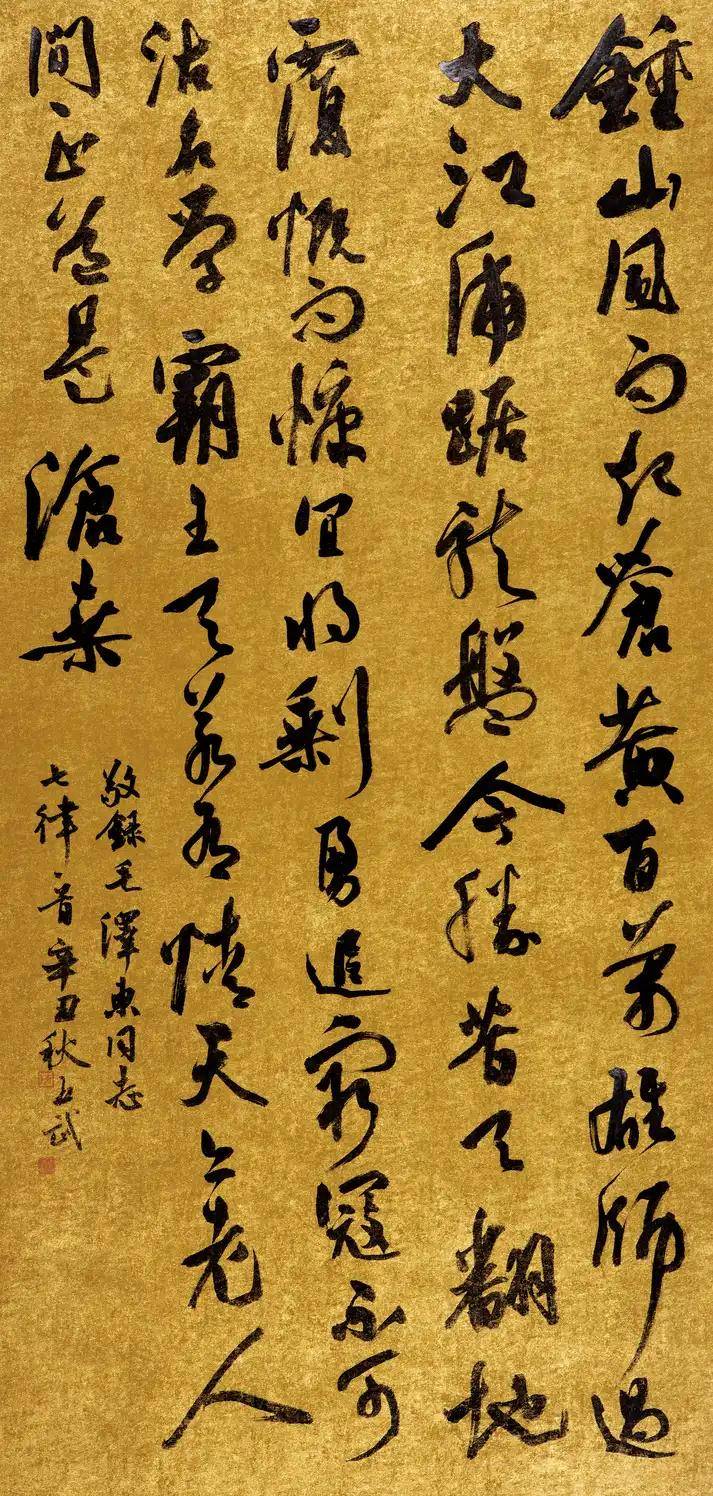 鍾山風雨起蒼黃百萬雄師過
大江虎踞龍盤今勝昔天翻地
覆慨而慷宜將剩勇追窮寇不可
沽名學霸王天若有情天亦老人
間正道是滄桑
敬錄毛澤東同志
七律首辛丑秋